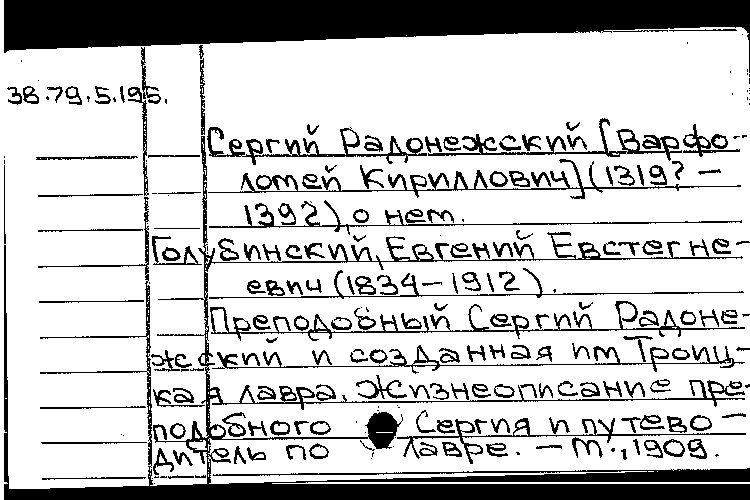 38.79.5.195.
Сергий Радонежский [Варфо-
ломей Кириллович] (1319? –
1392), о нем.
Голубинский, Евгений Евстегне-
евич (1834–1912).
Преподобный Сергий Радоне-
жский и созданная им Троиц-
кая лавра. Жизнеописание пре-
подобного Сергия и путево-
дитель по лавре. – М., 1909.